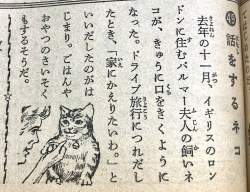 ㊾話をするネコ
去年の十一月、イギリスのロン
ドンに住むパルマー夫人の飼いネ
コが、きゅうに口をきくように
なった。ドライブ旅行につれだし
たとき、「家にかえりたいわ。」と
いいだしたのがは
じまり。ごはんや
おやつのさいそく
もするそうだ。